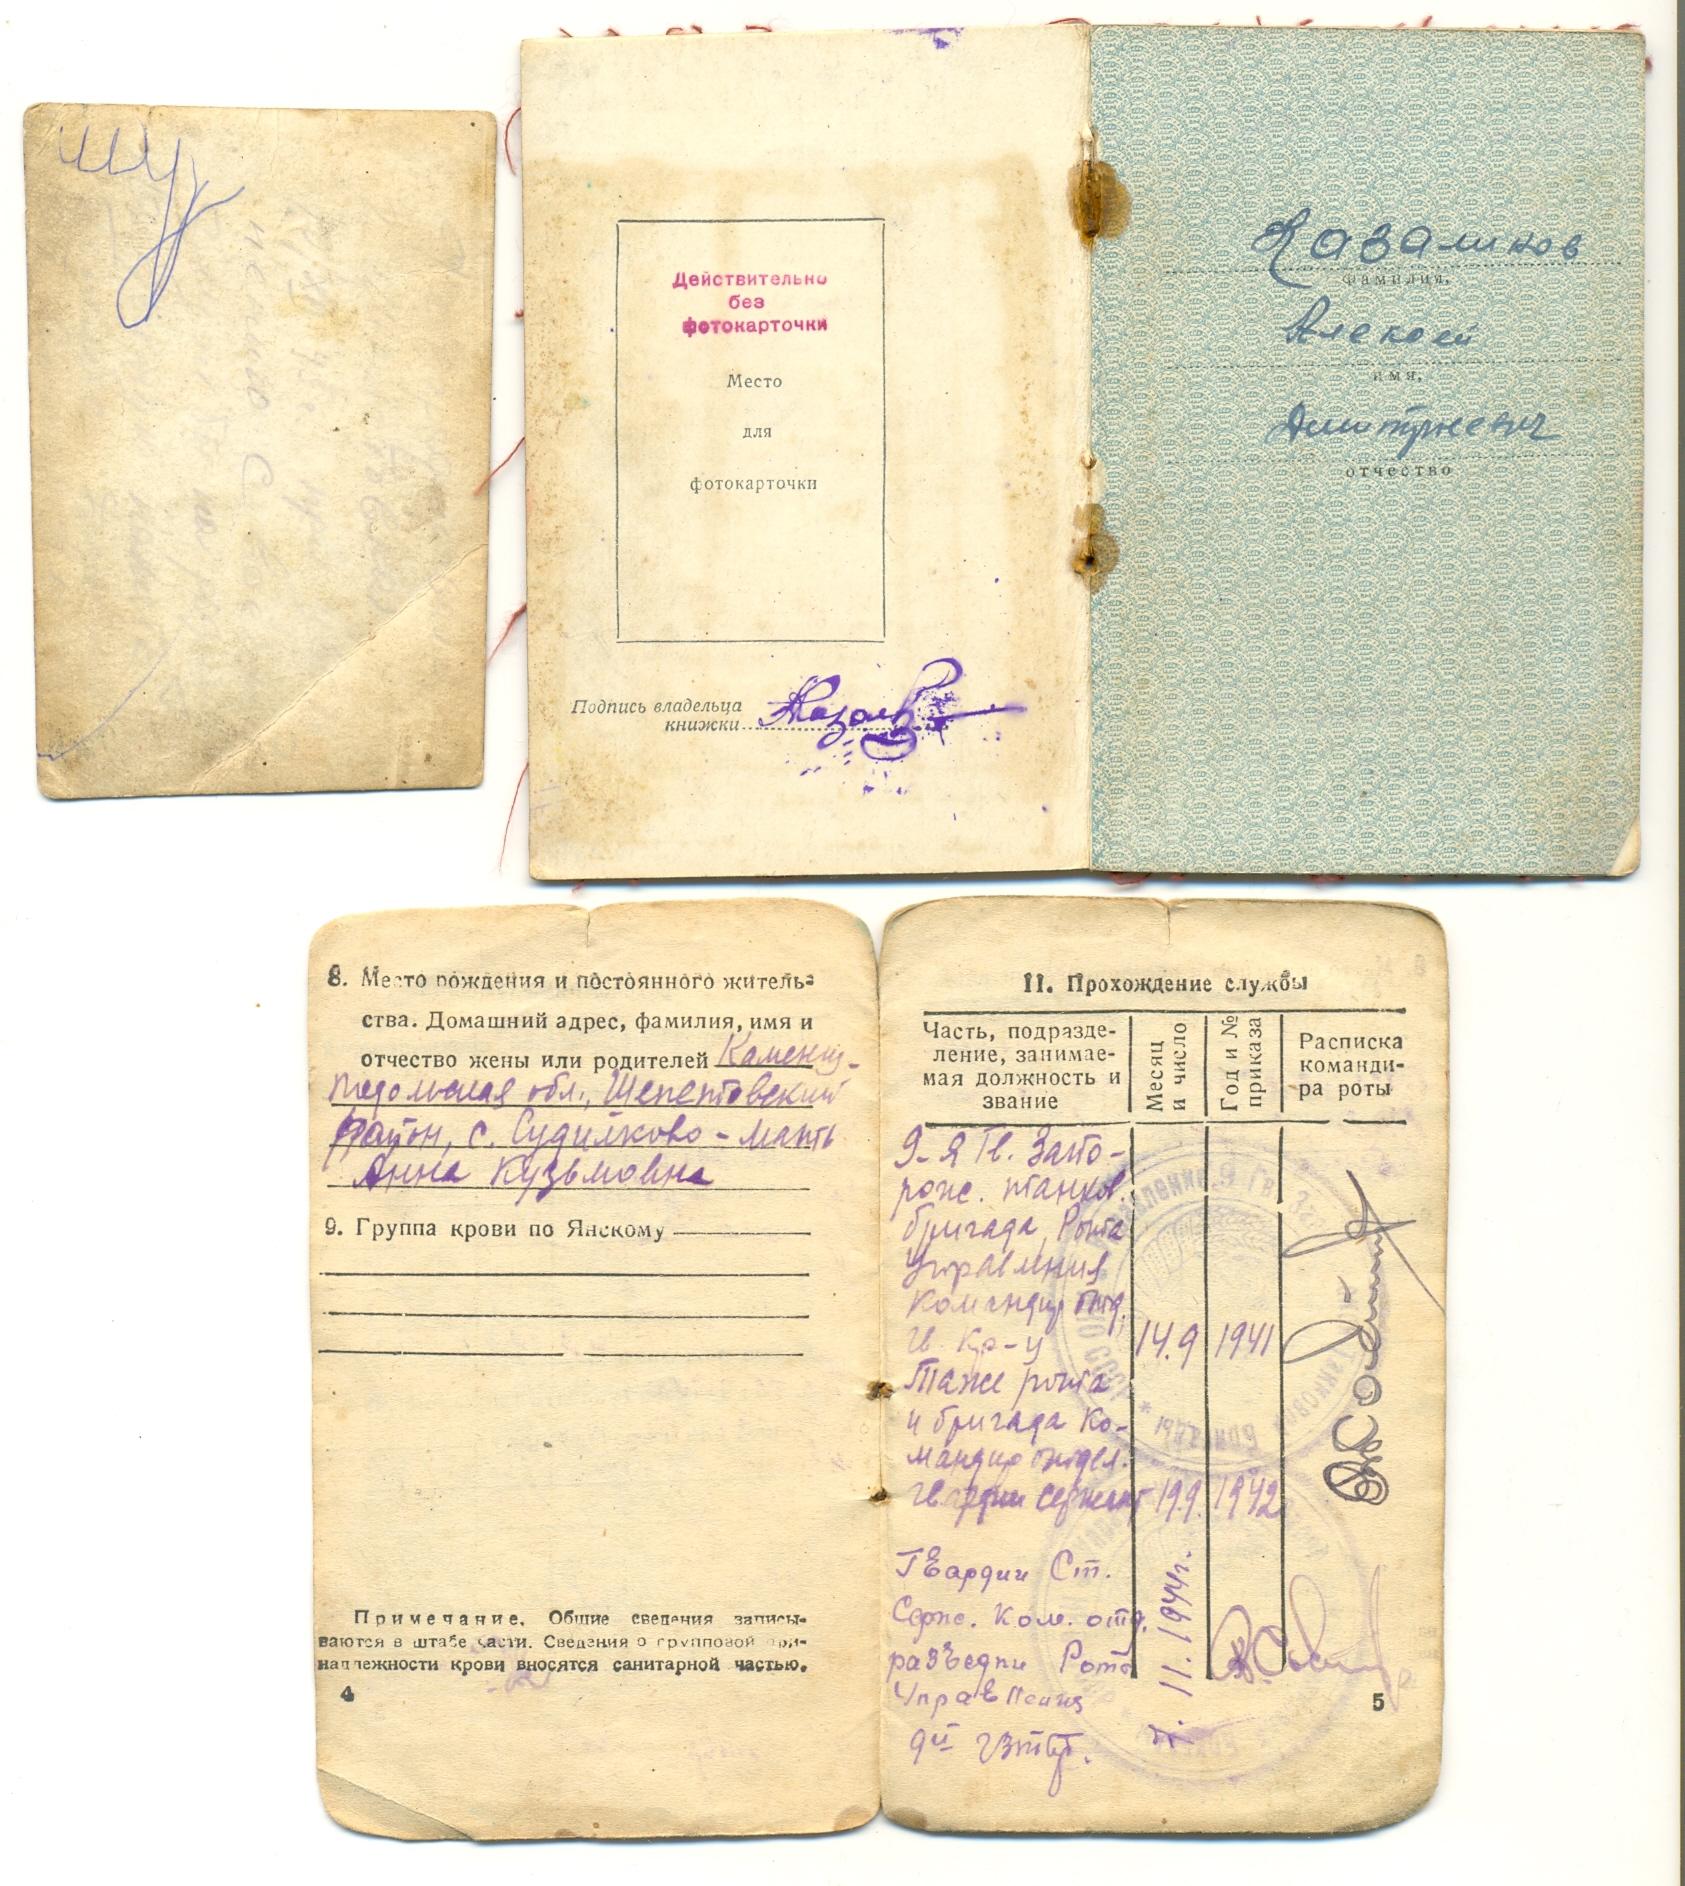 Действительно
без
фотокарточки
Место
для
фотокарточки
Подпись владельца
книжки
Казаликов
фамилия,
Алексей
имя,
Дмитриевич
отчество
8. Место рождения и постоянного житель-
ства. Домашний адрес, фамилия, имя и
отчество жены или родителей Каменец-
подольская обл., Шепетовский
район, с. Судилково - мать
Анна Кузьмовна
9. Группа крови по Янскому
Примечание. Общие сведения записы-
ваются в штабе части. Сведения о групповой при-
надлежности крови вносятся санитарной частью.
4
11. Прохождение службы
Часть, подразде-
ление, занимае-
мая должность и
звание
Месяц
и число
Год и №
приказа
Расписка
команди-
ра роты
9-я Гв. Запо-
рож. танков.
бригада, Рота
управления
командир отд.
гв. Кр-ц 14.9 1941
Таже рота
и бригада Ко-
мандир отдел.
гвардии сержант 19.9. 1942
Гвардии Ст.
Серж. Ком. отд.
разведки Роты
Управления
9й гзтбр.
11. 1944г.
5